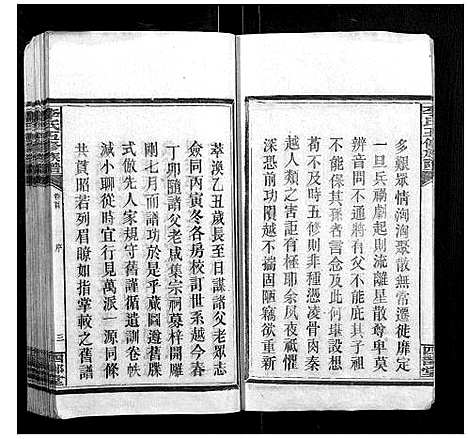 多艱眾情洶洶聚散無常徙靡定
一旦兵禍劇起則流離星散尊卑莫
辨音問不通將有父不能庇其子祖
不能保其孫者言念及此何堪設想
若不及時五修則非種憑凌骨肉秦
越人類之害詎有極耶余夙夜祗懼
深恐前功隕越不揣固陋竊欲重新
萃渙乙丑歲長至日謀諸父老眾志
僉同丙寅冬各房校訂世系越今春
丁卯隨諸父老咸集宗祠募梓開雕
剛七月而譜功於是乎蕆圖遵舊牒
式倣先人家規守舊謹循遺訓卷帙
減小聊從時宜行見萬派一源同條
共貫昭若列眉瞭如指掌較之舊譜
李氏五修族譜
卷首
序
三